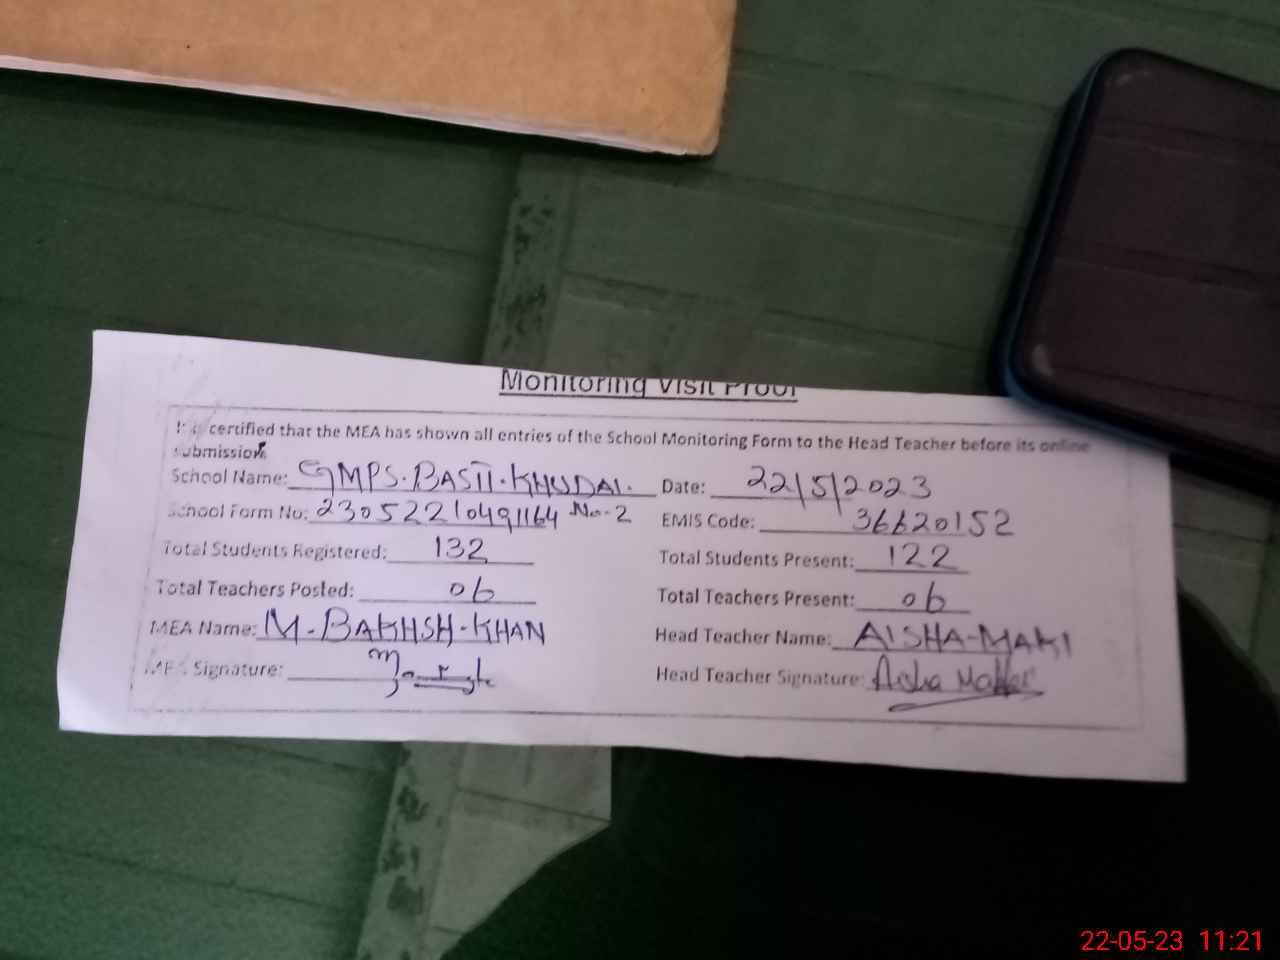 Monitoring Visit Proof
It is certified that the MEA has shown all entries of the School Monitoring Form to the Head Teacher before its online
submission.
School Name: GMPS. BASTI. KHUDAI. Date: 22/5/2023
School Form No: 23052210491164 No-2 EMIS Code: 36620152
Total Students Registered: 132 Total Students Present: 122
Total Teachers Posted: 06 Total Teachers Present: 06
MEA Name: M-BAKHSH-KHAN Head Teacher Name: AISHA-MAKI
MEA Signature: Head Teacher Signature: Aisha
22-05-23 11:21